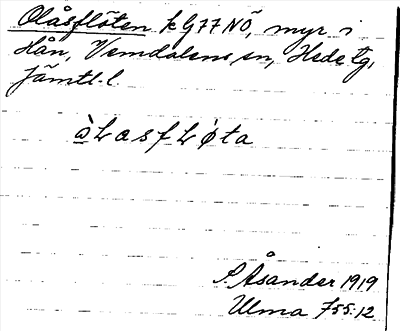 Olåsflöten kG77NÖ, myr i
Hån, Vemdalens sn, Hede tg,
Jämtl. l.
òLasfLøta
S. Åsander 1919
Ulma 755:12